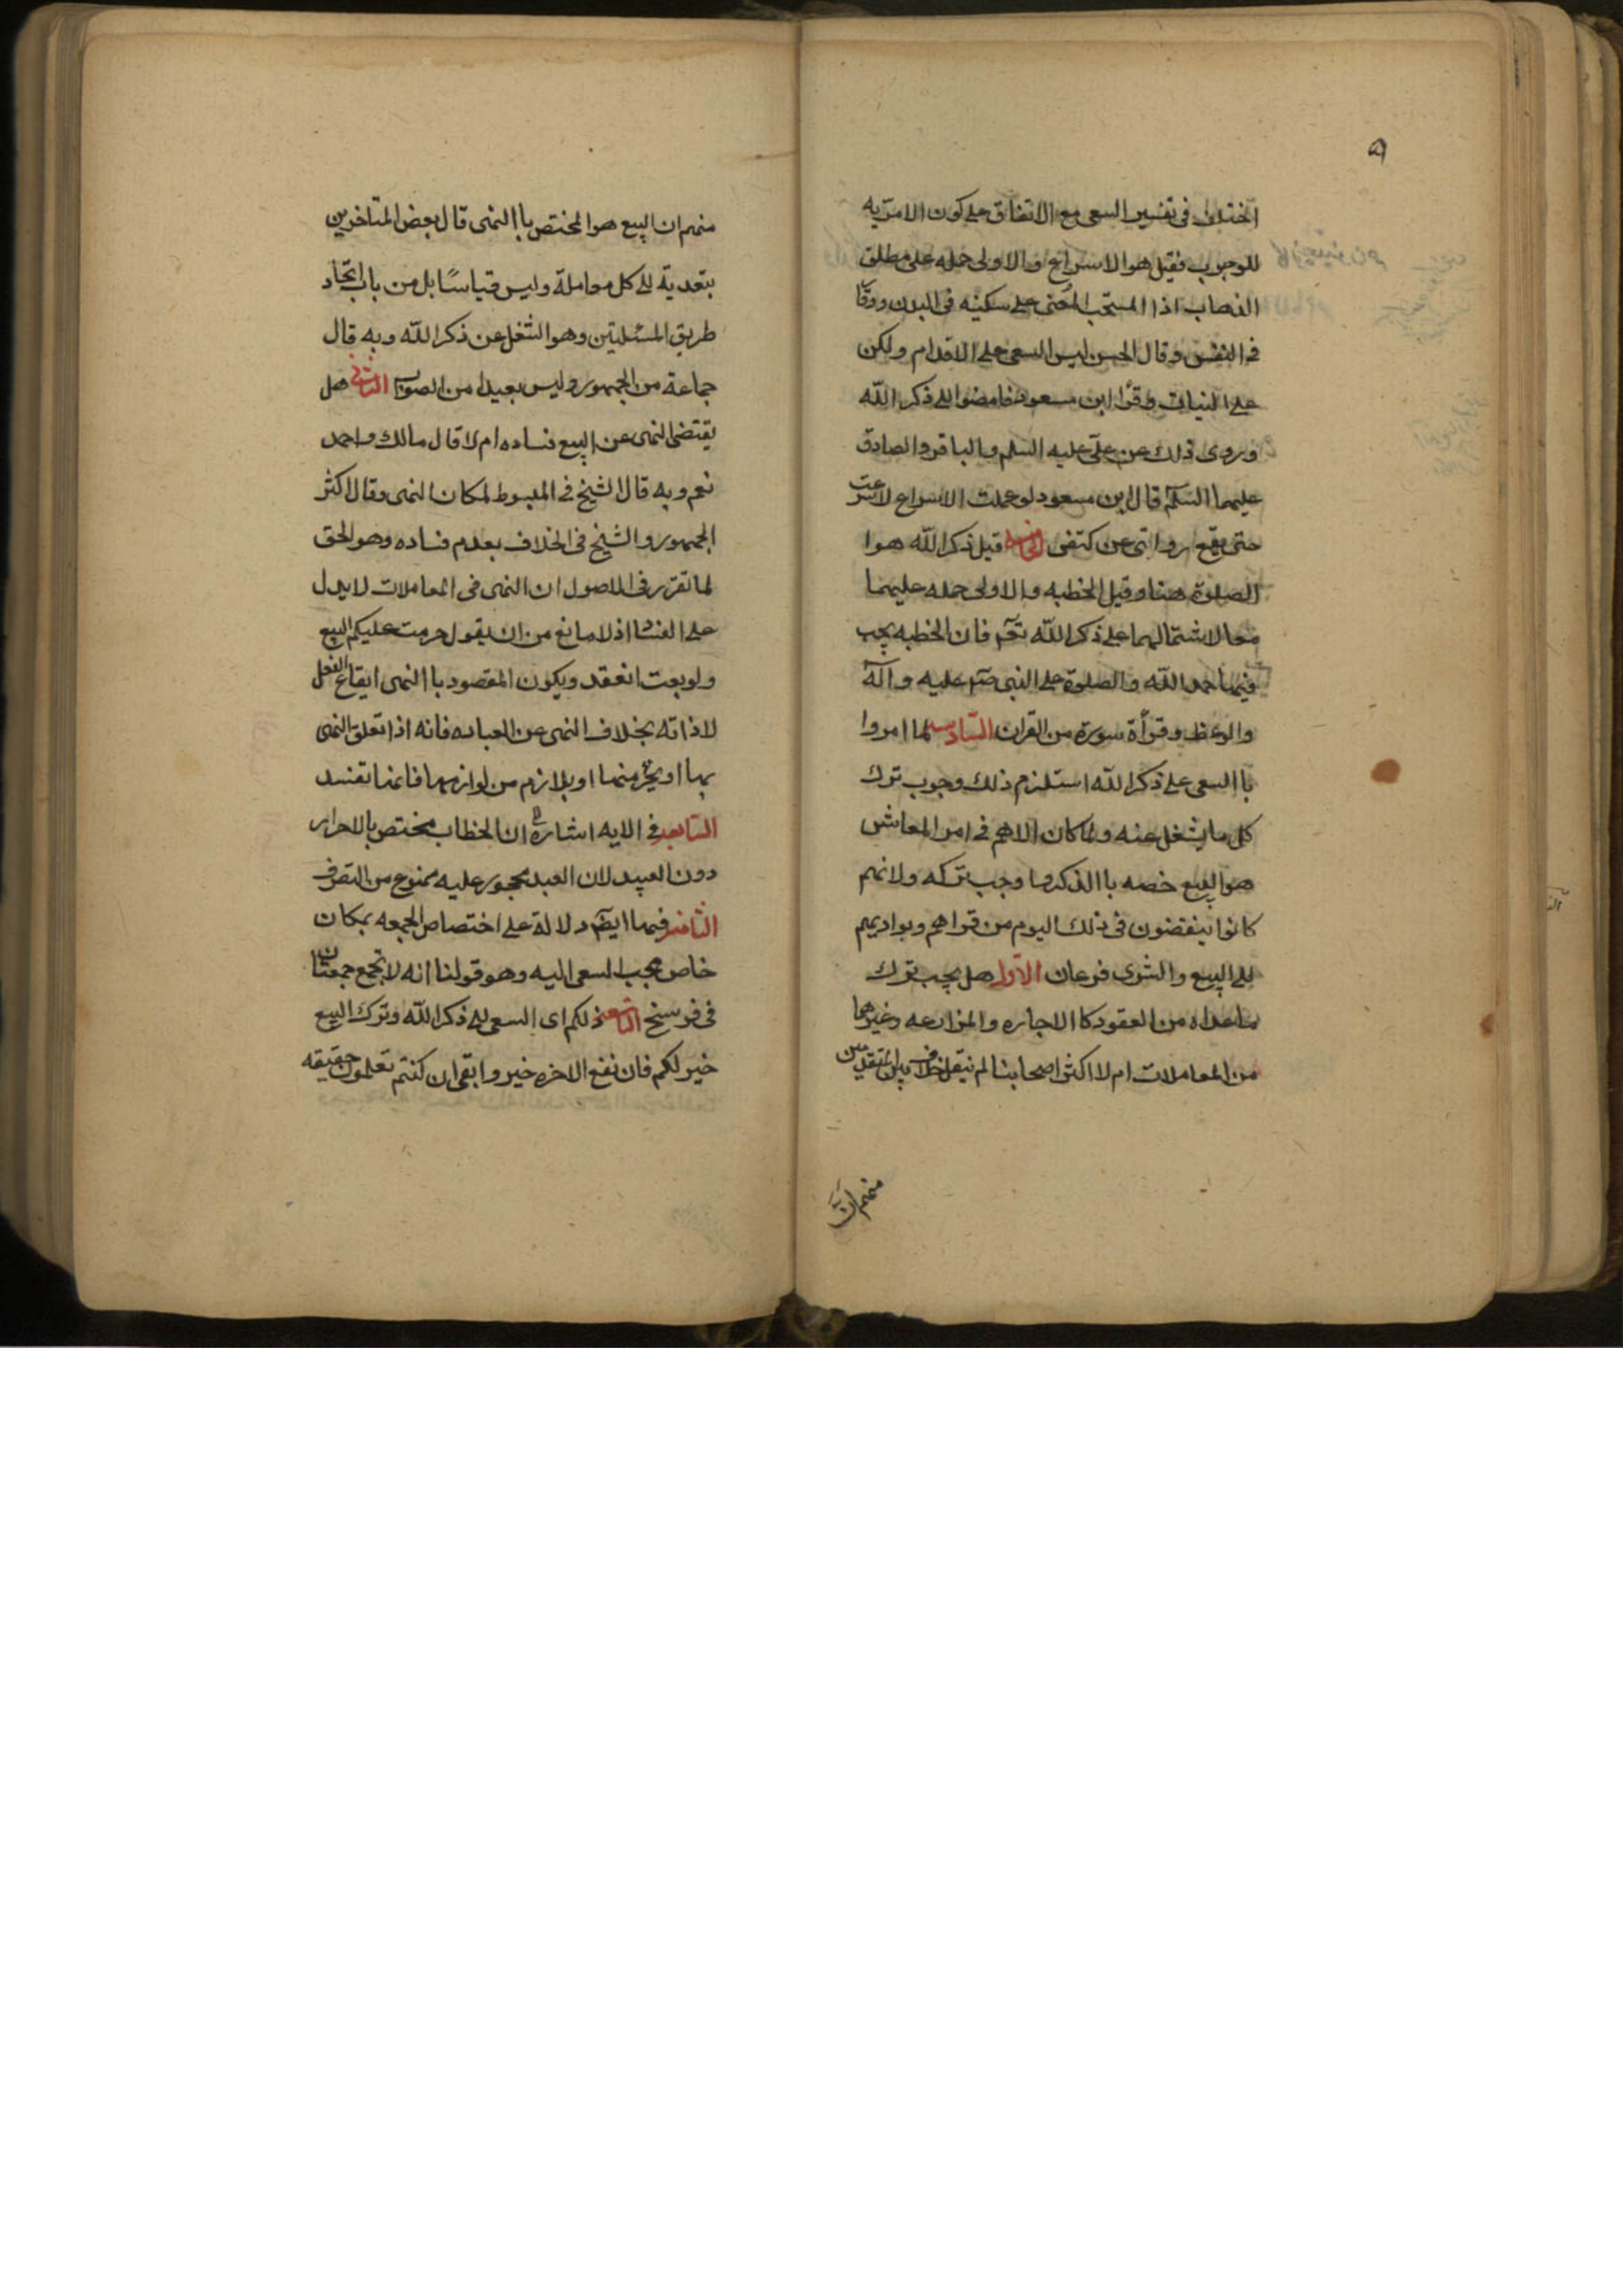 اختلف فى تفسير السعى مع الاتفاق على كون الامر به
للوجوب فقيل هو الاسراع والاولى حمله على مطلق
الذهاب اذا المستحب المضى على سكينه فى البدن ووقار
فى النفس وقال الحسن ليس السعى على الاقدام ولكن
على النيات وقرأ ابن مسعود فامضوا الى ذكر الله
وروى ذلك عن على عليه السلم والباقر والصادق
عليهما السلم قال ابن مسعود لو علمت الاسراع لاسرعت
حتى يقع ردائى عن كتفى الخامسه قيل ذكر الله هوا
الصلوة هنا وقيل الخطبه والاولى حمله عليهما
معا لاشتمالهما على ذكر الله تعم فان الخطبه يجب
فيها حمد الله والصلوة على النبى صلم عليه وآله
والوعظ وقرأة سورة من القران السادسه لما امروا
با السعى على ذكر الله استلزم ذلك وجوب ترك
كل ما يشغل عنه ولما كان الاهم فى امر المعاش
هو البيع خصه با الذكر وما وجب تركه ولانهم
كانوا ينفضون فى ذلك اليوم من قراهم وبواديهم
الى البيع والشرى فرعان الاول هل يجب ترك
ما عداه من العقود كا الاجاره والمزارعه وغيرهما
من المعاملات ام لا اكثر اصحابنا لم ينقل خلاف بين المتقدمين
منهم ان
منهم ان البيع هو المختص با النهى قال بعض المتاخرين
بتعدية الى كل معاملة وليس قياسًا بل من باب اتحاد
طريق المسئلتين وهو الشغل عن ذكر الله وبه قال
جماعة من الجمهور وليس بعيدا من الصواب الثانى هل
يقتضى النهى عن البيع فساده ام لا قال مالك واحمد
نعم وبه قال الشيخ فى المبسوط لمكان النهى وقال اكثر
الجمهور والشيخ فى الخلاف بعدم فساده وهو الحق
لما تقرر فى الاصول ان النهى فى المعاملات لا يدل
على الفساد اذ لا مانع من ان يقول حرمت عليكم البيع
ولو بعت انعقد ويكون المقصود با النهى ايقاع الفعل
لاذاته بخلاف النهى عن العباده فانه اذا تعلق النهى
بها او بجزء منها او بلازم من لوازمها فانها تفسد
السابعه فى الايه اشارة الى ان الخطاب مختص بالاحرار
دون العبيد لان العبد محجور عليه ممنوع من التصرف
الثامنه فيها ايضا دلالة على اختصاص الجمعه بمكان
خاص يجب السعى اليه وهو قولنا انه لا تجمع جمعتان
فى فرسخ التاسعه ذلكم اى السعى الى ذكر الله وترك البيع
خير لكم فان نفع الاخره خير وابقى ان كنتم تعلمون حقيقه